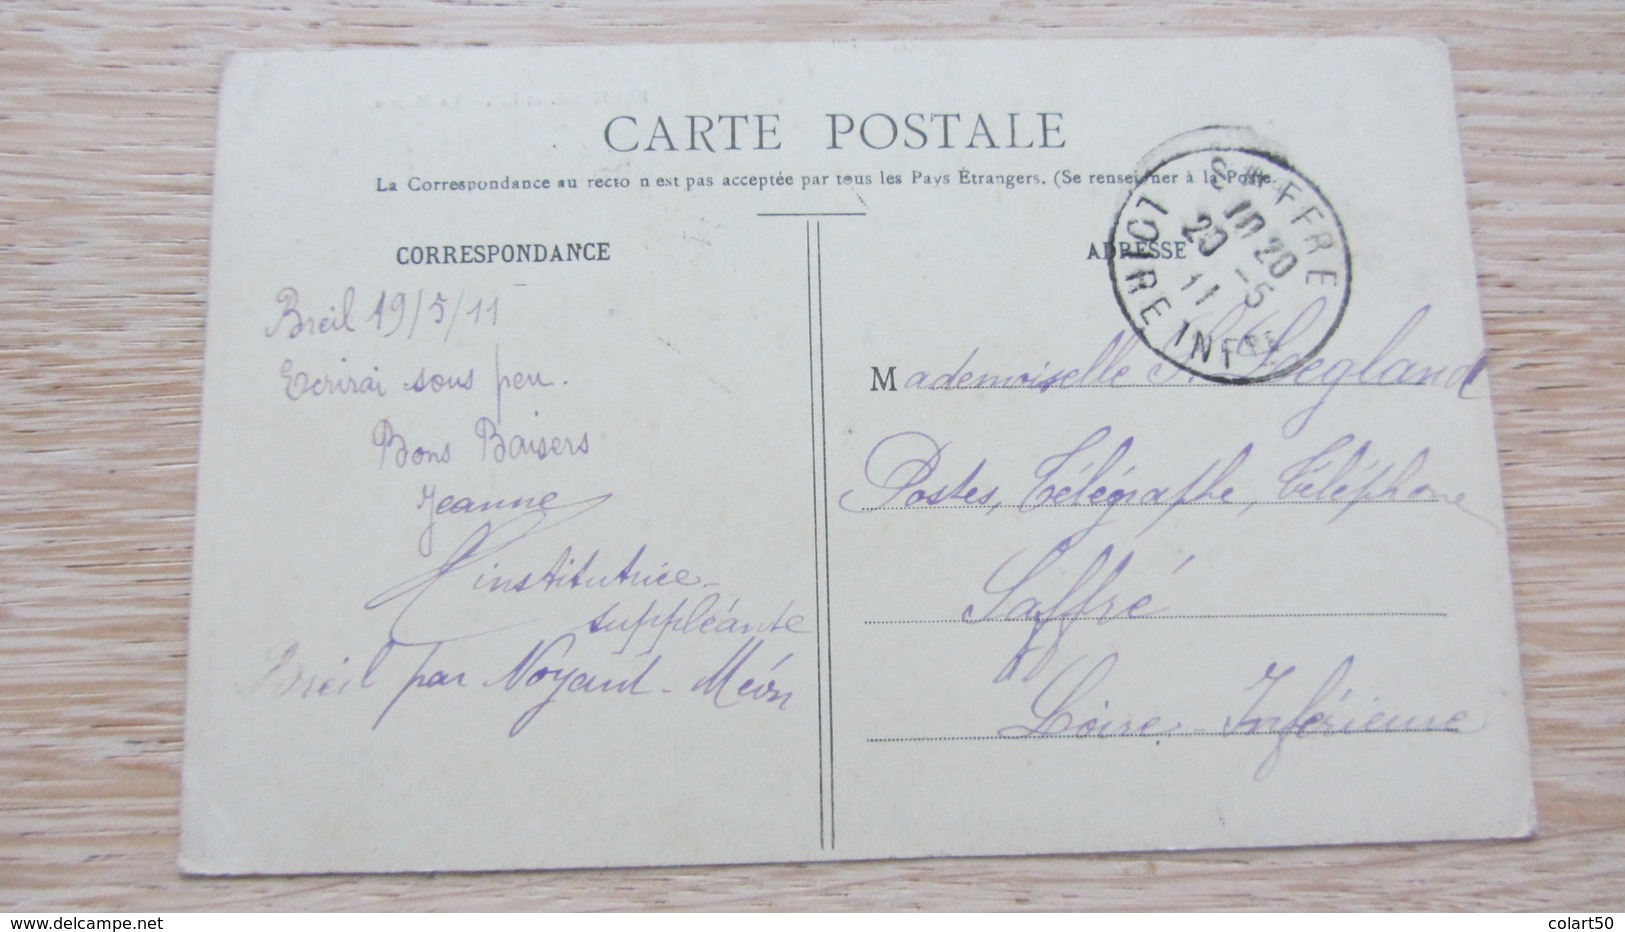 CARTE POSTALE
La Correspondance au recto n'est pas acceptée par tous les Pays Étrangers. (Se renseigner à la Poste
CORRESPONDANCE
Breil 19/5/11
Ecrirai sous peu.
Bons Baisers
Jeanne
institutrice
suppléante
Breil par Noyant-Méon
ADRESSE
SAFFRE
10 20
20 -5
11
LOIRE INFRE
Mademoiselle
Postes, Télégraphe, Téléphone
Saffré
Loire-Inférieure
delcampe.net
colart50